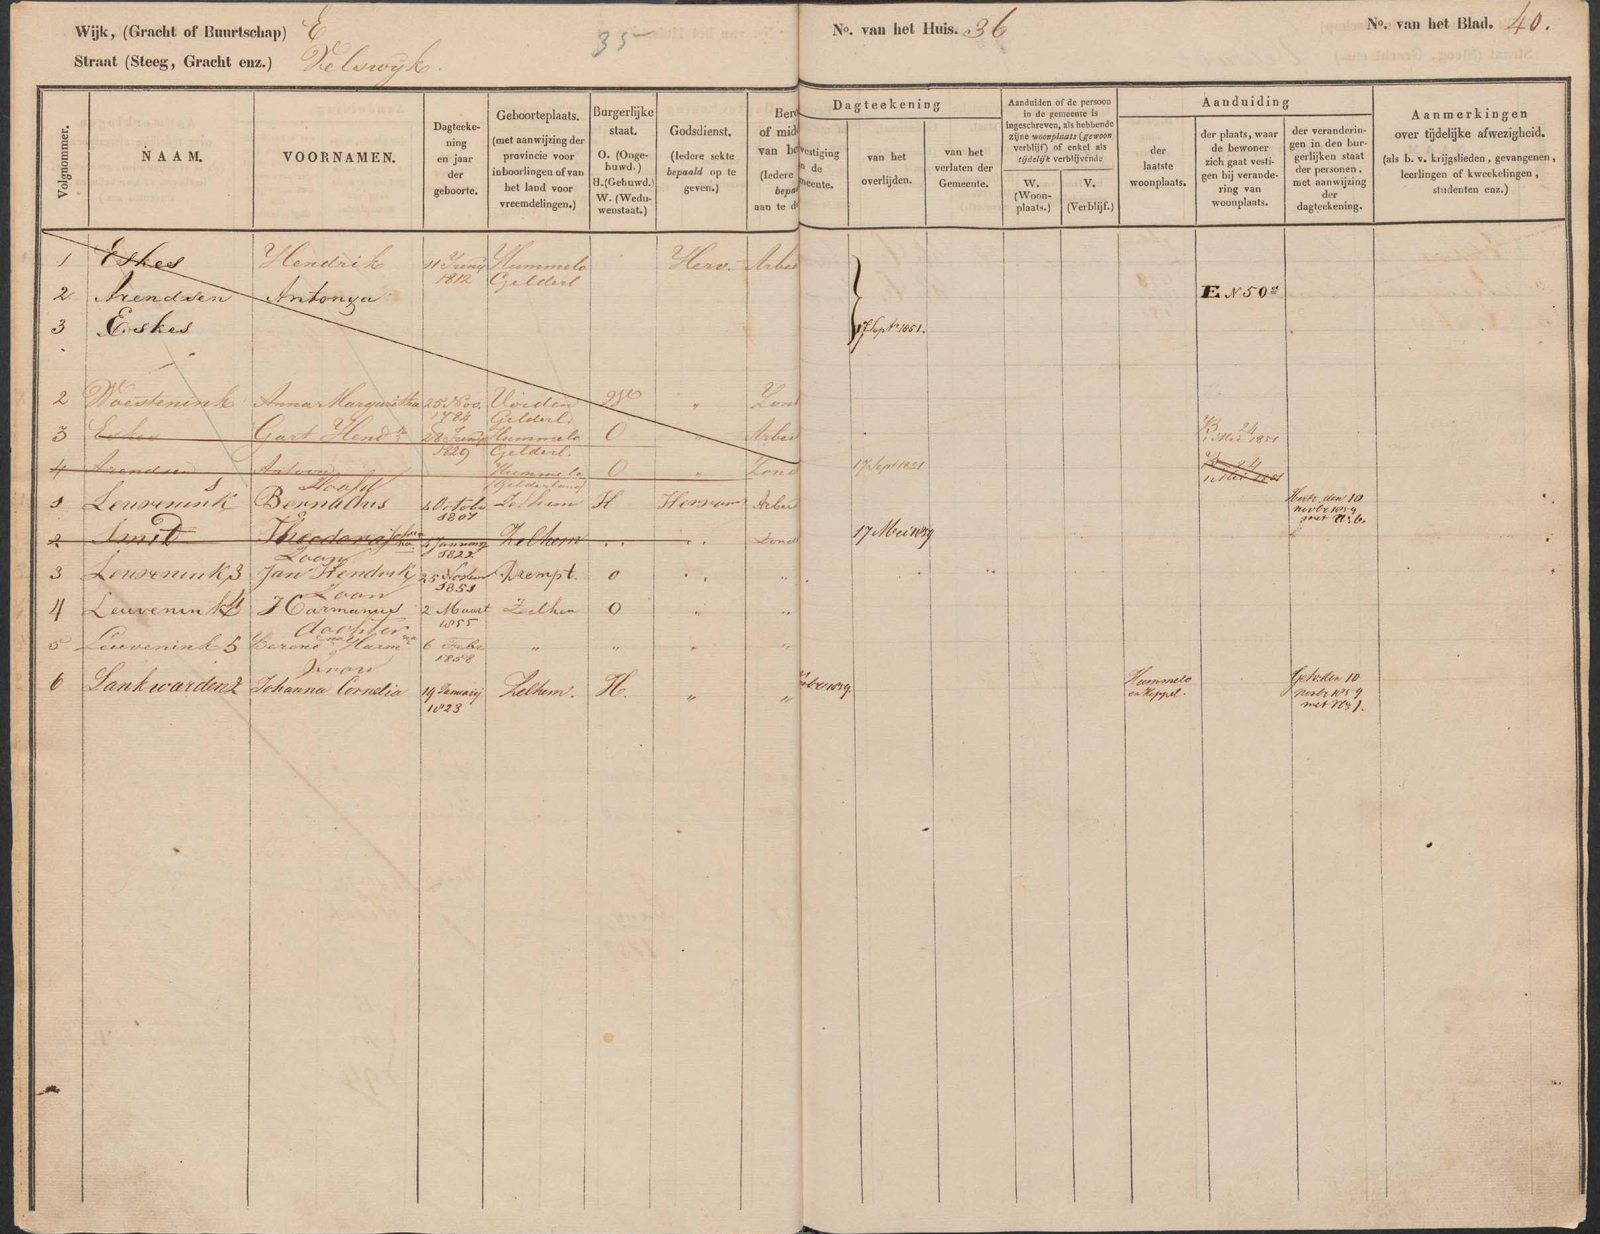 Wijk, (Gracht of Buurtschap) E
Straat (Steeg, Gracht enz.) Velswyk.
35
No. van het Huis. 36
No. van het Blad. 40.
Volgnommer.
NAAM.
VOORNAMEN.
Dagteeke-
ning
en jaar
der
geboorte.
Geboorteplaats.
(met aanwijzing der
provincie voor
inboorlingen of van
het land voor
vreemdelingen.)
Burgerlijke
staat.
O. (Onge-
huwd.)
H. (Gehuwd.)
W. (Wedu-
wenstaat.)
Godsdienst.
(Iedere sekte
bepaald op te
geven.)
Ber
of mid
van be
(Iedere
bepa
aan te d
Dagteekening
vestiging
n de
meente.
van het
overlijden.
van het
verlaten der
Gemeente.
Aanduiden of de persoon
in de gemeente is
ingeschreven, als hebbende
zijne woonplaats (gewoon
verblijf) of enkel als
tijdelijk verblijvende
W.
(Woon-
plaats.)
V.
(Verblijf.)
Aanduiding
der
laatste
woonplaats.
der plaats, waar
de bewoner
zich gaat vesti-
gen bij verande-
ring van
woonplaats.
der veranderin-
gen in den bur-
gerlijken staat
der personen,
met aanwijzing
der
dagteekening.
Aanmerkingen
over tijdelijke afwezigheid.
(als b. v. krijgslieden, gevangenen,
leerlingen of kweekelingen,
studenten enz.)
1 Eskes Hendrik 11 Junij Hummelo Herv. Arbei
1812 Gelderl
2 Arendsen Antonya E N 50
3 Eskes 17 Sept 1851.
2 Woestenink Anna Margaretha 25 Nov. Vorden " Lond
1784 Gelderl.
3 Eskes Gart Hend 28 Junij Hummelo O " Arbei 24
1829 Gelderl. 1 Mei 1851
4 Arendsen Antoon Hummelo O " Lond 17 Sept 1851 24
(Gelderland)
Hoofd
1 Leuvenink Bernadus 4 Octob Zelhem H Hervorm Arbei
1807
10
novbr 1859
met No 6.
2 Smit Theodora Januarij Zelhem Lond 17 Mei 1859
1822
Zoon
3 Leuvenink 3 Jan Hendrik 25 Drempt. o "
1851
Zoon
4 Leuvenink 4 Harmanus 2 Maart Zelhem O " "
1855
dochter
5 Leuvenink 5 Berend Harm 6 Febr " " " "
1858
Vrouw
6 Lankwarden 2 Johanna Cornelia 19 Januarij Zelhem. H. " " Hummelo den 10
1823 en Keppel. novbr 1859
met No 1.